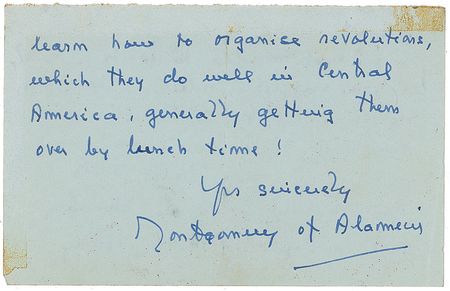 learn how to organise revolutions,
which they do well in Central
America, generally getting them
over by lunch time!
Yrs sincerely
Montgomery of Alamein